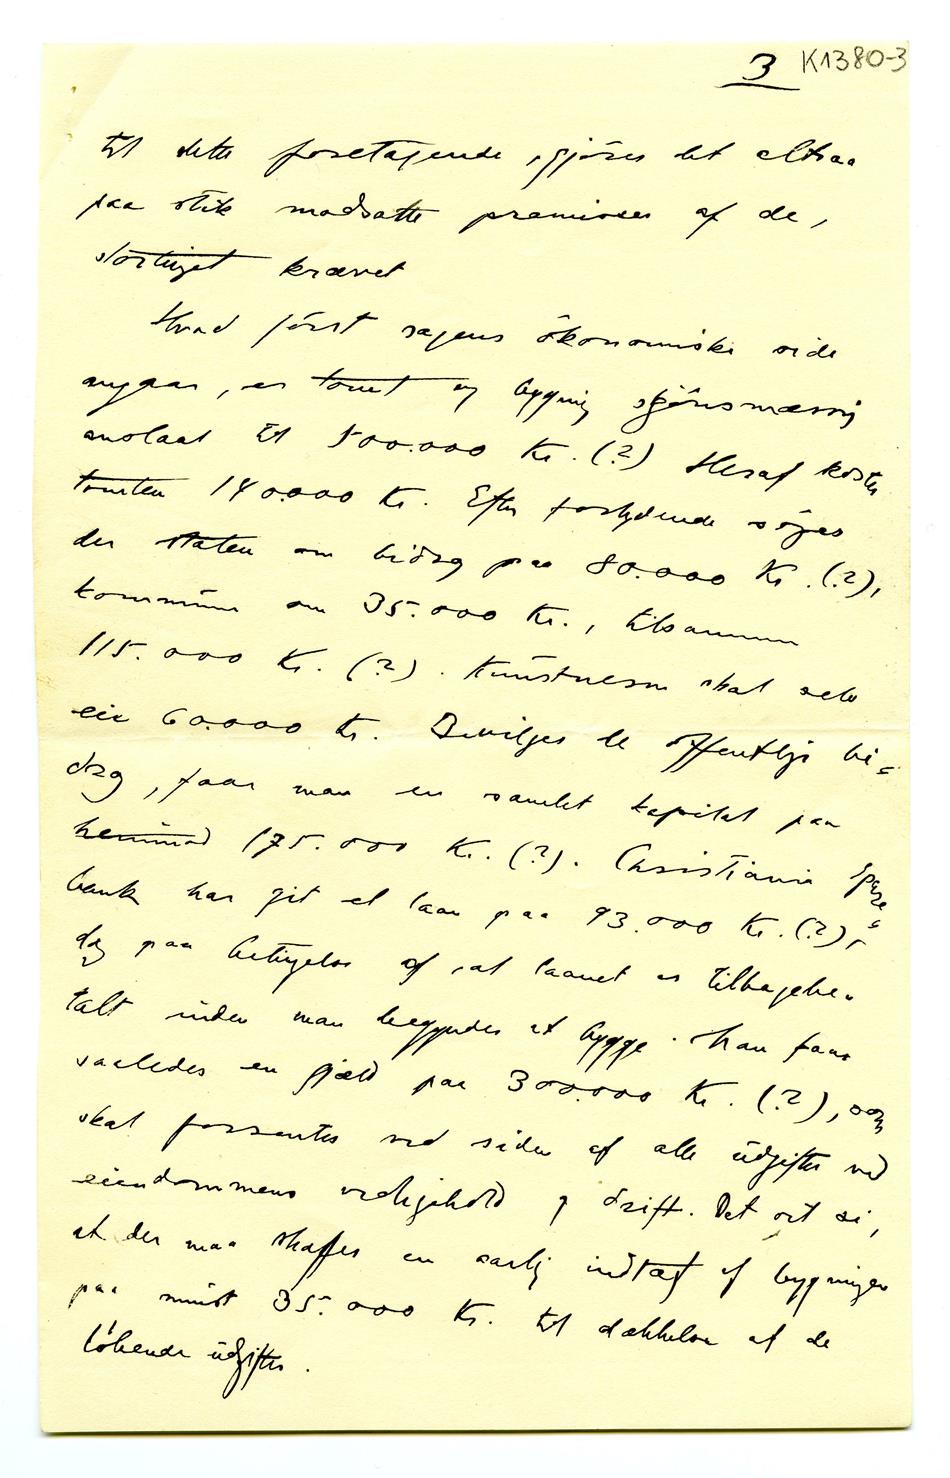 3 K1380-3
til dette foretagende, gjøres det altsaa
paa stik modsatte præmisser af de,
stortinget krævet
Hvad først sagens økonomiske side
angaar, er tomt og bygning skjønsmæssig
anslaat til 500.000 Kr. (?) Heraf koster
tomten 140.000 Kr. Efter forlydende søges
der staten om bidrag paa 80.000 Kr. (?),
kommunen om 35.000 Kr., tilsammen
115.000 Kr. (?). Kunstnerne skal selv
eie 60.000 Kr. Bevilges de offentlige bi=
drag, faar man en samlet kapital paa
henimod 175.000 Kr. (?). Christiania Spare=
bank har git et laan paa 93.000 Kr. (?),
dog paa betingelse af, at laanet er tilbagebe=
talt inden man begynder at bygge. Man faar
saaledes en gjæld paa 300.000 Kr. (?), som
skal forrentes ved siden af alle udgifter ved
eiendommens vedligehold og drift. Det vil si,
at der maa skaffes en aarlig indtægt af bygningen
paa mindst 35.000 Kr. til dækkelse af de
løbende udgifter.